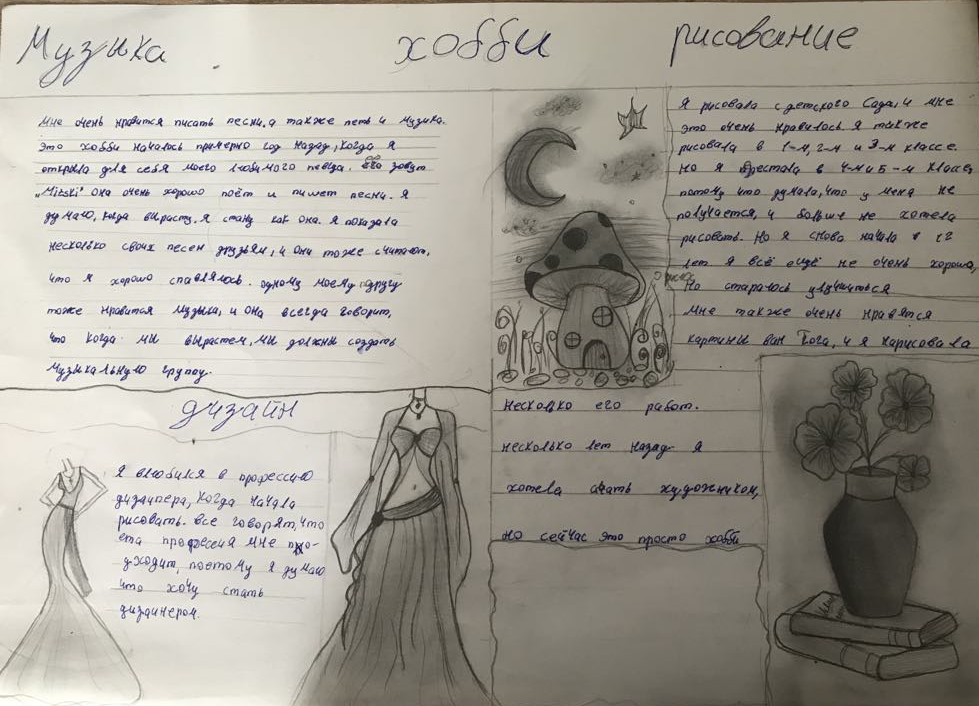 Музыка
хобби
рисование
Мне очень нравится писать песни, а также петь и музыка.
Это хобби началось примерно год назад, когда я
открыла для себя моего любимого певца. его зовут
„Mitski" она очень хорошо поёт и пишет песни. Я
думаю, когда вырасту, я стану как она. Я показала
несколько своих песен друзьям, и они тоже считают,
что я хорошо справлялось. одному моему другу
тоже нравится музыка, и она всегда говорит,
что когда мы вырастем, мы должны создать
музыкальную группу.
Я рисовала с детского Сада, и мне
это очень нравилось я также
рисовала в 1-м, 2-м и 3-м классе.
Но я перестала в 4-м и 5-м классе,
потому что думала, что у меня не
получается, и больше не хотела
рисовать. Но я снова начала в 12
лет. Я всё ещё не очень хорошо,
но стараюсь улучшиться
Мне также очень нравятся
картины ван Гога, и я нарисовала
несколько его работ.
несколько лет назад я
хотела стать художником,
но сейчас это просто хобби
дизайн
Я влюбился в профессию
дизайнера, когда начала
рисовать. все говорят, что
эта профессия мне по-
дходит, поэтому я думаю
что хочу стать
дизайнером.